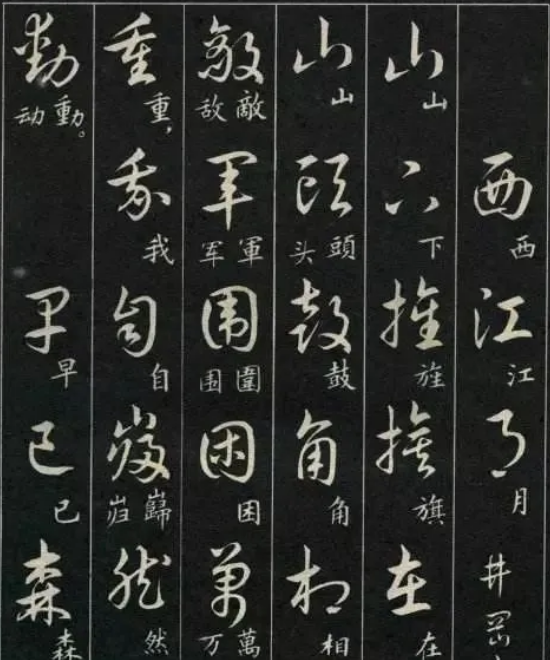 西西江江月月井岡
山山下下旌旌旗旗在在
山山頭頭头鼓鼓角角相相
敵敵敌軍軍军围圍围困困萬萬万
重重，我我自自巋巋岿然然
動動。动早早已已森森